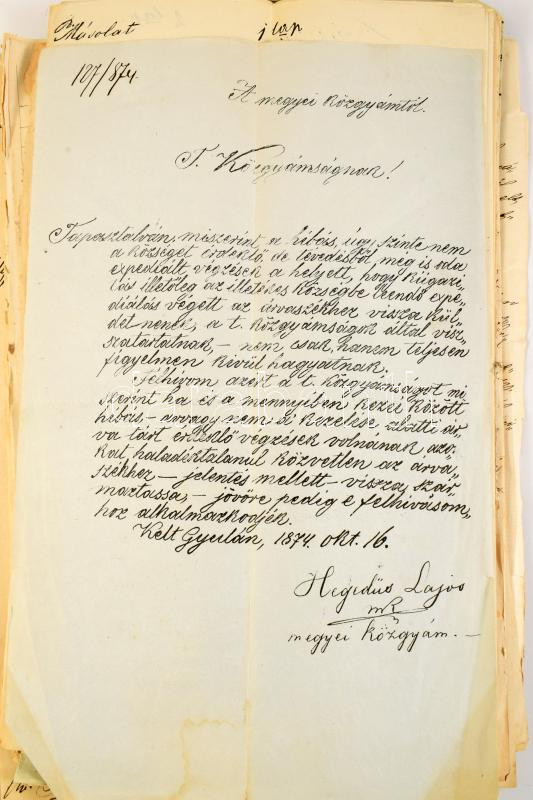 Másolat
j lap
127/874.
A megyei közgyámtól.
T. Közgyámságnak!
Tapasztalván, miszerint a hibás, úgy szinte nem
a községet érdeklő, de tévedésből meg is oda
expediált végzések a helyett, hogy kiigazi-
tás illetőleg az illetékes községbe leendő expe-
diálás végett az árvaszékhez vissza kül-
detnének, a t. közgyámságok által visz-
szatartatnak, – nem csak, hanem teljesen
figyelmen kívül hagyatnak.
Felhívom azért a t. közgyámságot mi-
szerint ha és a mennyiben kezei között
hibás, – avagy nem a kezelése alatti ár-
va tárt érdeklő végzések volnának azo-
kat haladéktalanúl közvetlen az árva-
székhez – jelentés mellett – vissza szár-
maztassa, – jövőre pedig e felhívásom-
hoz alkalmazkodjék.
Kelt Gyulán, 1874. okt. 16.
Hegedüs Lajos
mk
megyei közgyám. –